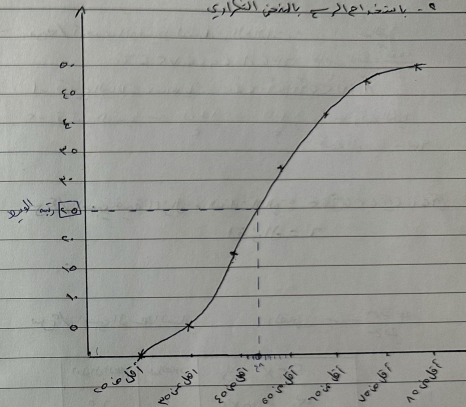 ٥- باستخدام الرسم بالمنحنى التكراري
٥٠
٤٥
٤٠
٣٥
٣٠
رتبة الوسيط ٢٥
٢٠
١٥
١٠
٥
أقل من ٢٥ أقل من ٣٥ أقل من ٤٥ أقل من ٥٥ أقل من ٦٥ أقل من ٧٥ أقل من ٨٥